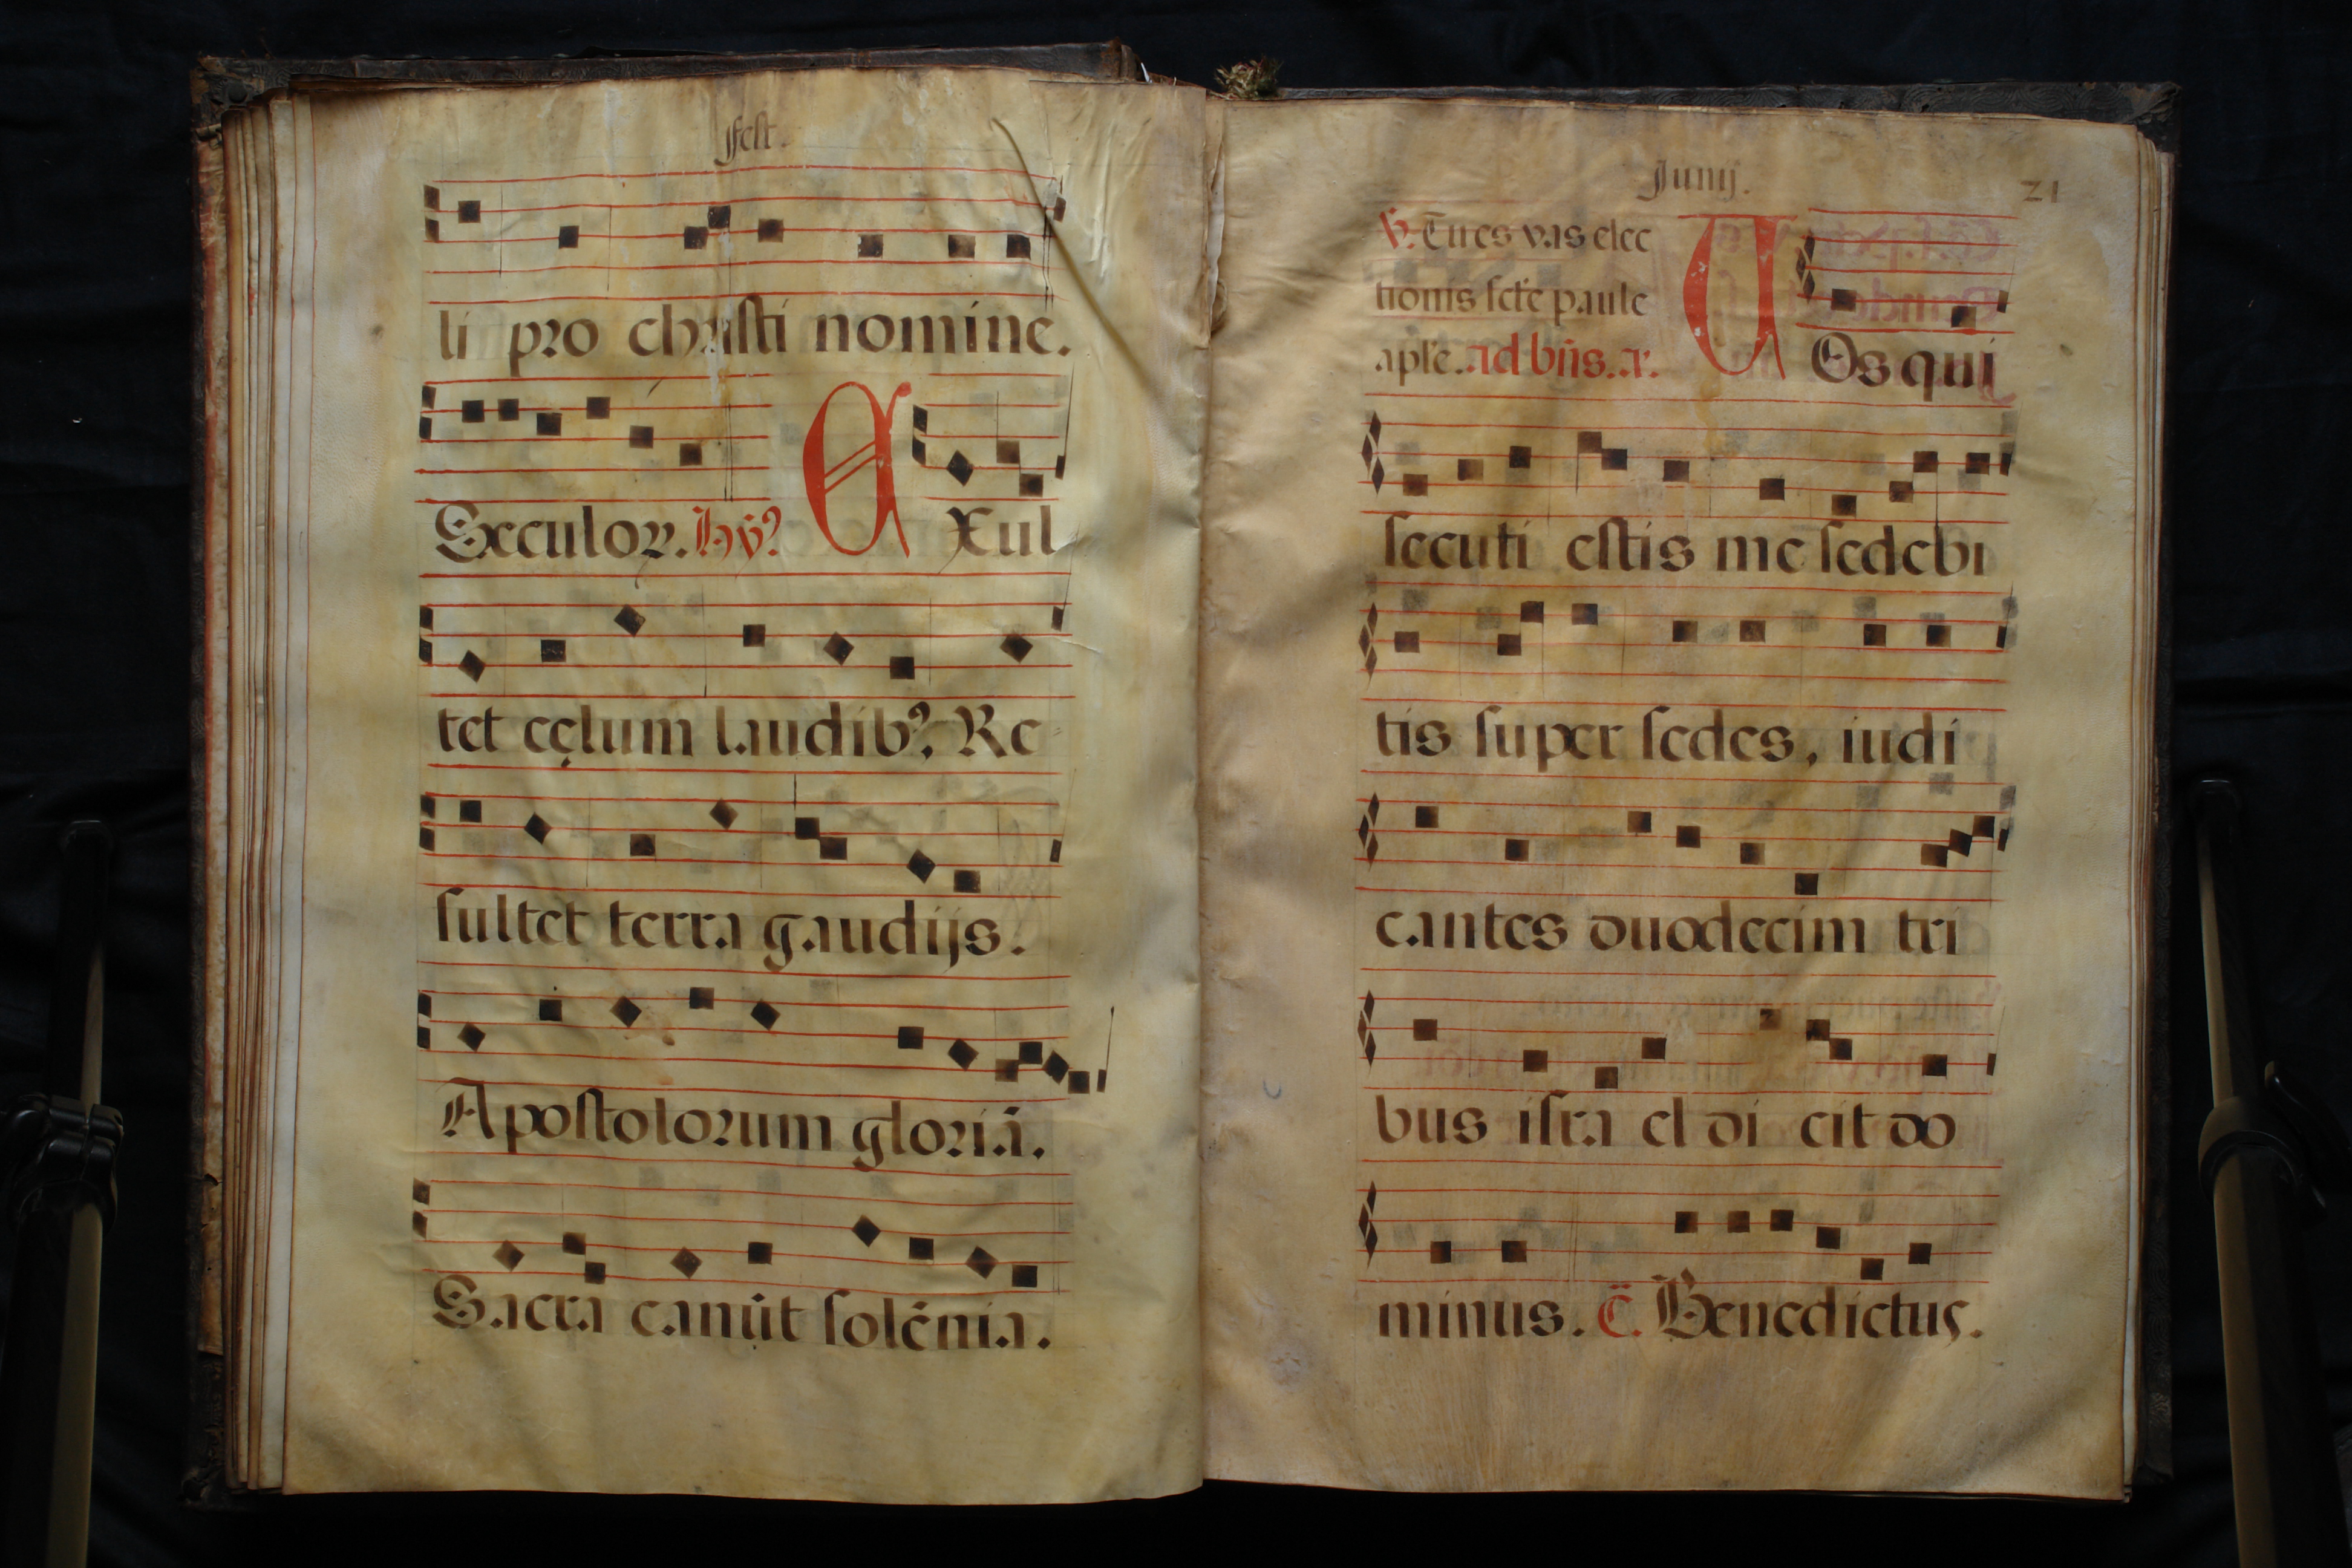 fest.
li pro christi nomine.
Seculoꝝ. Hỹ⁹ EXul
tet cęlum laudib⁹. Re
sultet terra gaudijs.
Apostolorum gloriā.
Sacra canūt solēnia.
Junij. 21
℣. Tu es vas elec
tionis sct̄e paule
apl̄e. Ad bn̄s. a. VOs qui
secuti estis me sedebi
tis super sedes, iudi
cantes duodecim tri
bus isra el di cit do
minus. C̄. Benedictus.